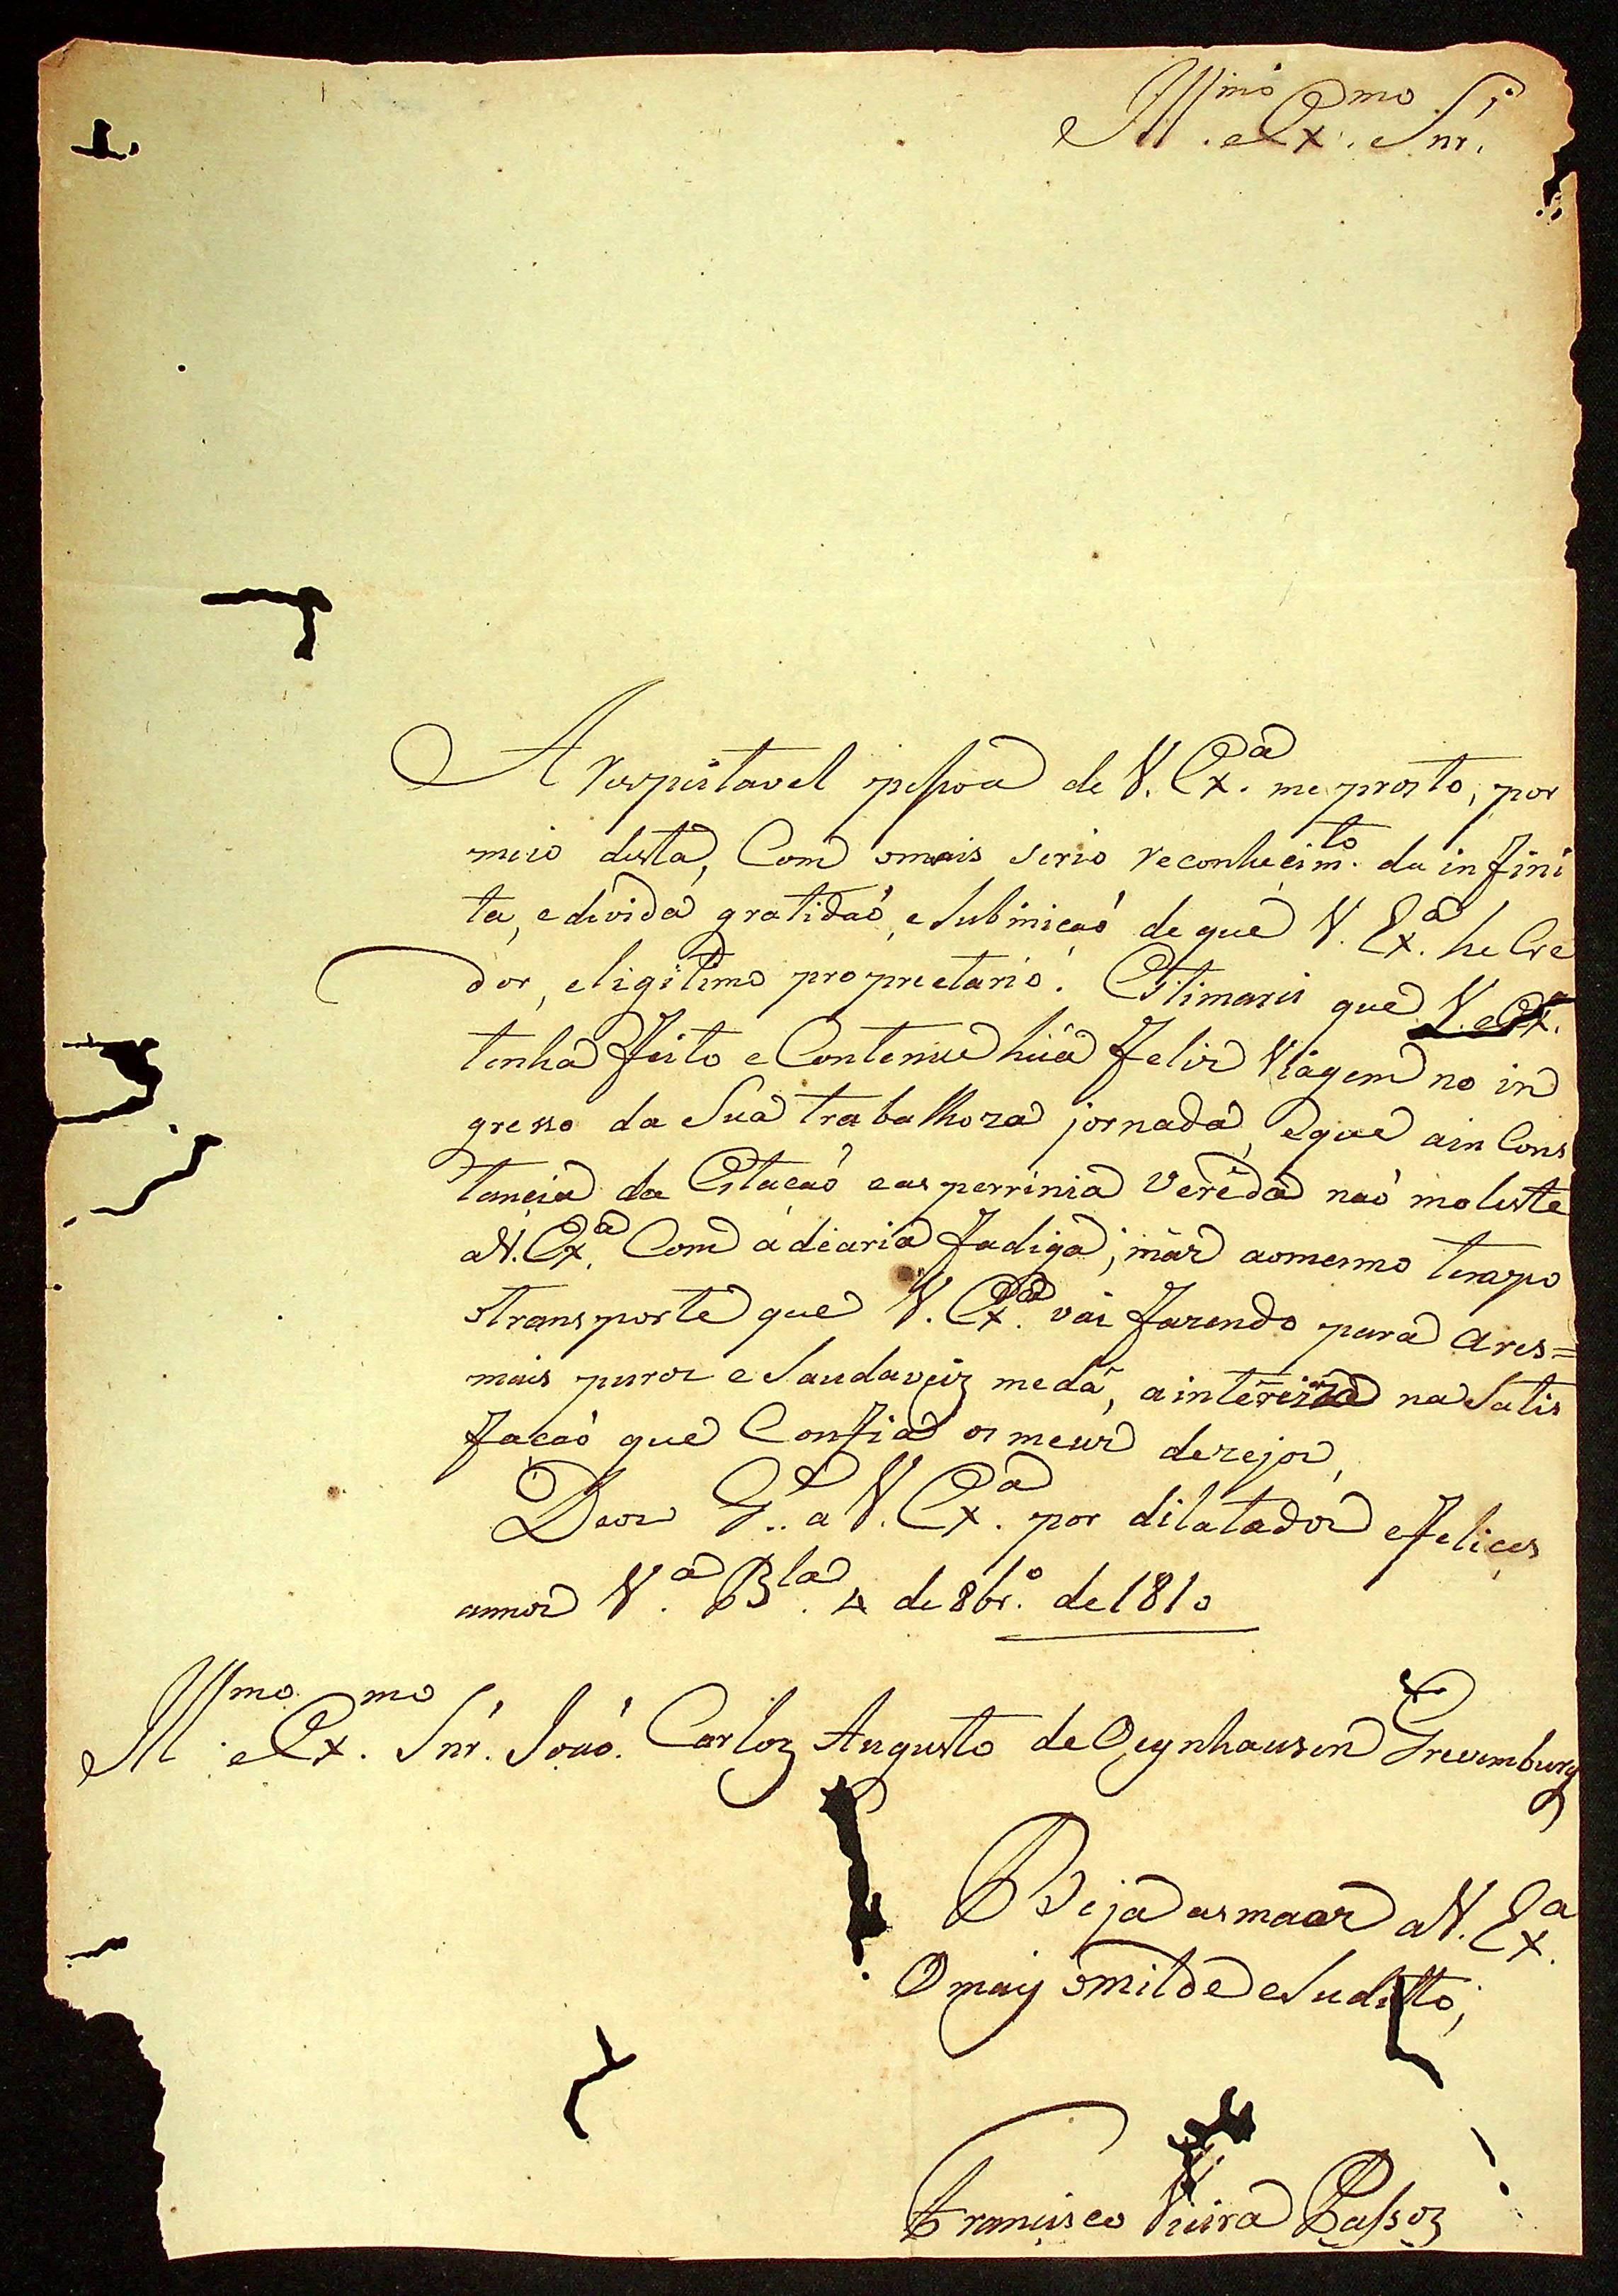 Ill.mo e Ex.mo Snr.
A respeitavel pessoa de V. Ex.a me prosto, por
meio desta, Com omais serio reconhecim.to da infini
ta, edivida gratidaó, eSubmicaó deque V. Ex.a he Cre
dor, eligitimo proprietario. Estimarei que V. Ex.a
tenha feito e Contenue húa feliz Viagem no in
gresso da Sua trabalhoza jornada, eque ain Cons
tancia da Estacaó eas perrinia Veréda naó moleste
aV. Ex.a Com a dearia fadiga; màs aomesmo tempo
otransporte que V. Ex.a vai fazendo para ares=
mais puros e Saudaveiz medá, ainteireza na Satis
façaó que Confia os meus dezejos,
Deos G.e a V. Ex.a por dilatados efelices
annos V.a B.la 4 de 8br.o de 1810
Ill.mo e Ex.mo Snr. Joaó Carloz Augusto de Oeynhausen Grevemburg
Beja as maos aV. Ex.a
Omaiz omilde eSuditto;
Francisco Vieira Passoz